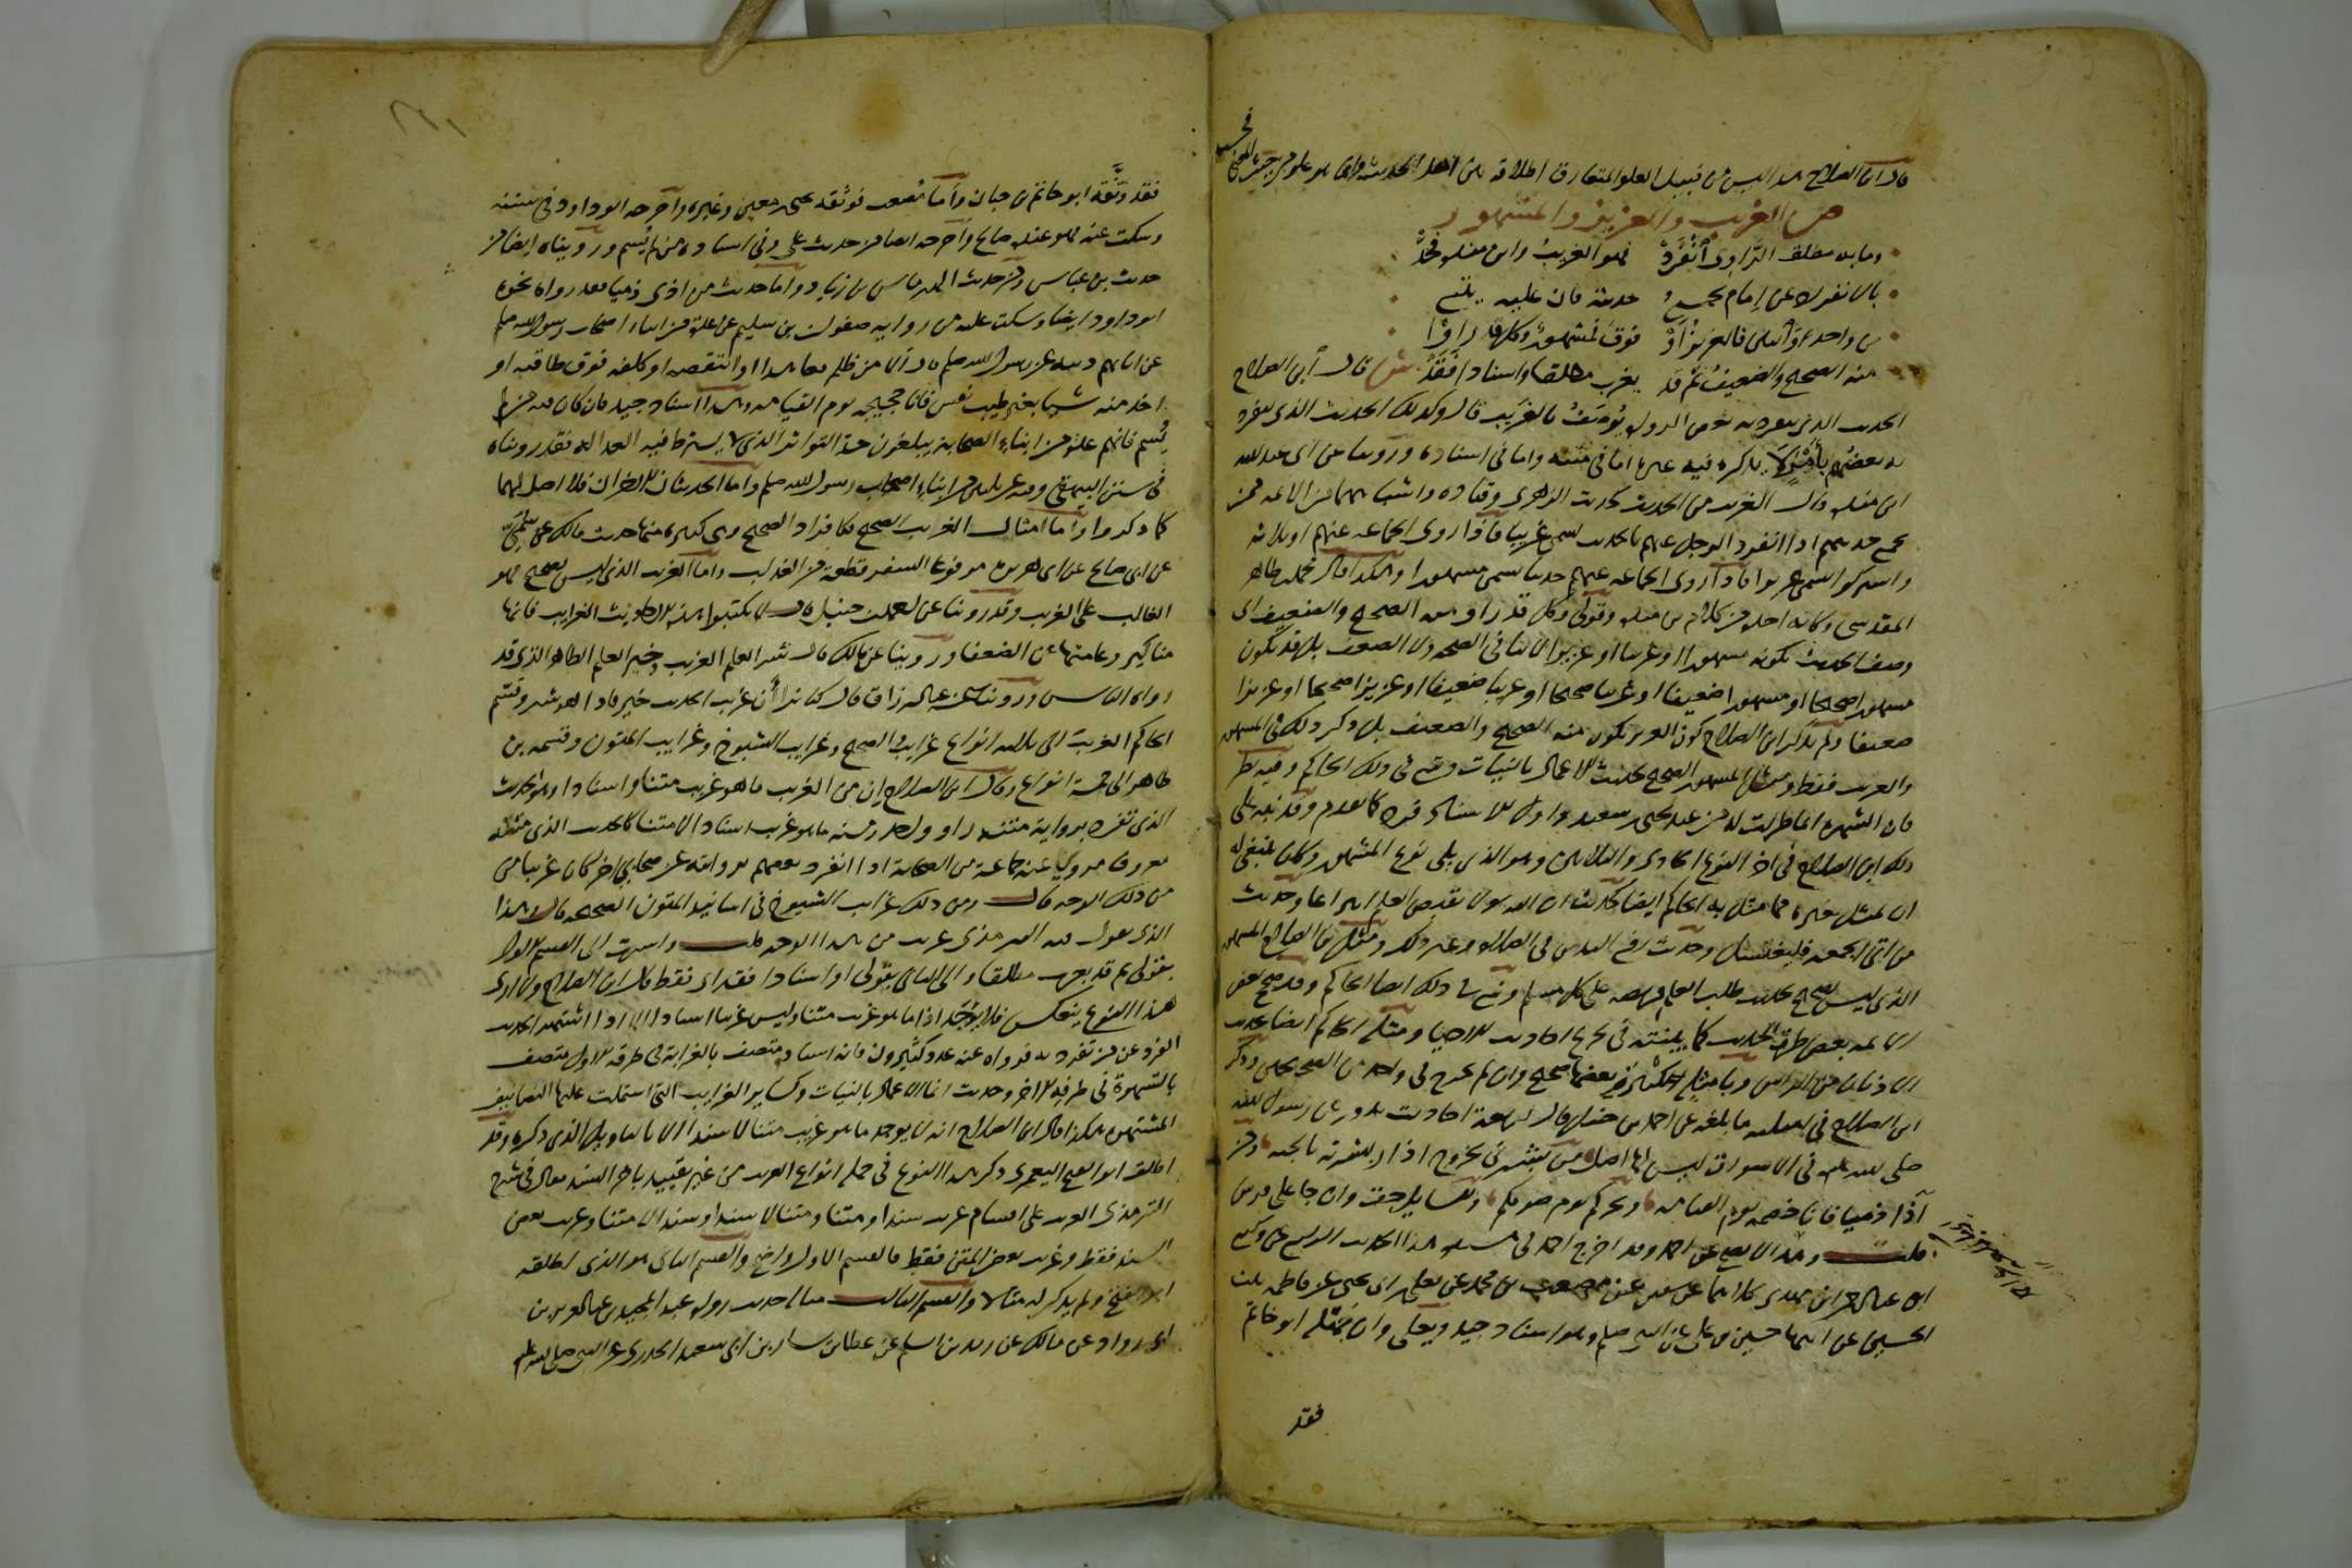 قال ابن الصلاح هذا ليس من قبيل العلو المتعارف اطلاقه بين اهل الحديث وانما هو علو من حيث المعنى
فحسب
ص الغريب والعزيز والمشهور
وما به مطلقا الراوى انفرد فهو الغريب وابن منده فحد
بالانفراد عن امام يجمع حديثه فان عليه يتبع
من واحد واثنين فالعزيز او فوق فمشهور وكل قد راوا
منه الصحيح والضعيف ثم قد يغرب مطلقا او اسنادا فقد ش قال ابن الصلاح
الحديث الذى يتفرد به بعض الرواة يوصف بالغريب قال وكذلك الحديث الذى يتفرد
به بعضهم بامر لا يذكره فيه غيره اما فى متنه واما فى اسناده وروينا عن ابى عبد الله
ابن منده قال الغريب من الحديث كحديث الزهرى وقتاده واشباههما من الائمه ممن
يجمع حديثهم اذا انفرد الرجل عنهم بالحديث يسمى غريبا فاذا روى الجماعه عنهم او ثلاثه
واشتركوا يسمى عزيزا فاذا روى الجماعه عنهم حديثا يسمى مشهورا وهكذا قال محمد بن طاهر
المقدسى وكانه اخذه من كلام بن منده وقولى وكل قد راوا منه الصحيح والضعيف اى
وصف الحديث بكونه مشهورا او غريبا او عزيزا لا ينافى الصحه ولا الضعف بل قد يكون
مشهورا صحيحا او مشهورا ضعيفا او غريبا صحيحا او غريبا ضعيفا او عزيزا صحيحا او عزيزا
ضعيفا ولم يذكر ابن الصلاح كون العزيز يكون منه الصحيح والضعيف بل ذكر ذلك فى المشهور
والغريب فقط ومثل المشهور الصحيح بحديث الاعمال بالنيات وتبع فى ذلك الحاكم وفيه نظر
فان الشهره انما طرات له من عند يحيى بن سعيد واول الاسناد فرد كما تقدم وقد نبه على
ذلك ابن الصلاح فى اخر النوع الحادى والثلاثين وهو الذى يلى نوع المشهور وكان ينبغى له
ان يمثل بغيره مما مثل به الحاكم ايضا كحديث ان الله لا يقبض العلم انتزاعا وحديث
من اتى الجمعه فليغتسل وحديث رفع اليدين فى الصلاه وغير ذلك ومثل بن الصلاح المشهور
الذى ليس بصحيح بحديث طلب العلم فريضه على كل مسلم وتبع فى ذلك ايضا الحاكم وقد صحح بعض
الائمه بعض طرق الحديث كما بينته فى تخريج احاديث الاحيا ومثله الحاكم ايضا بحديث
الاذنان من الراس وبامثله كثيره بعضها صحيح وان لم يخرج فى واحد من الصحيحين وذكر
ابن الصلاح فى امثلته ما بلغه عن احمد بن حنبل قال اربعة احاديث تدور عن رسول الله
صلى الله عليه فى الاسواق ليس لها اصل من بشرنى بخروج اذار بشرته بالجنه ومن
آذا ذميا فانا خصمه يوم القيامه ونحركم يوم صومكم وللسايل حق وان جا على فرس
قلت وهذا لا يصح عن احمد وقد اخرج احمد فى مسنده هذا الحديث الرابع عن وكيع
وعبد الرحمن بن مهدى كلاهما عن سفين عن مصعب بن محمد عن يعلى بن ابى يحيى عن فاطمه بنت
الحسين عن ابيها حسين بن على عن النبى صلعم وهو اسناد جيد ويعلى وان جهله ابو حاتم
فقد
فقد وثقه ابو حاتم بن حبان واما مصعب فوثقه يحيى بن معين وغيره واخرجه ابو داود فى سننه
وسكت عنه فهو عنده صالح واخرجه ايضا من حديث على وفى اسناده من لم يسم ورويناه ايضا من
حديث بن عباس ومن حديث الهرماس بن زياد واما حديث من اذى ذميا فقد رواه بنحوه
ابو داود ايضا وسكت عليه من روايه صفوان بن سليم عن عده من ابناء اصحاب رسول الله صلعم
عن ابائهم دنيه عن رسول الله صلعم قال الا من ظلم معاهدا او انتقصه او كلفه فوق طاقته او
اخذ منه شيئا بغير طيب نفس فانا حجيجه يوم القيامه وهذا اسناد جيد وان كان فيه من لم
يسم فانهم عده من ابناء الصحابه يبلغون حد التواتر الذى لا يشترط فيه العداله فقد رويناه
فى سنن البيهقى وفيه عن ثلاثين من ابناء اصحاب رسول الله صلعم واما الحديثان الاخران فلا اصل لهما
كما ذكر واما امثال الغريب الصحيح فكافراد الصحيح وهى كثيره منها حديث مالك عن سمى
عن ابى صالح عن ابى هريره مرفوعا السفر قطعه من العذاب واما الغريب الذى ليس بصحيح فهو
الغالب على الغريب وقد روينا عن احمد بن حنبل قال لا تكتبوا هذه الاحاديث الغرايب فانها
مناكير وعامتها عن الضعفا وروينا عن مالك قال شر العلم الغريب وخير العلم الظاهر الذى قد
رواه الناس وروينا عن عبد الرزاق قال كنا نرا ان غريب الحديث خير فاذا هو شر وقسم
الحاكم الغريب الى ثلاثه انواع غرايب الصحيح وغرايب الشيوخ وغرايب المتون وقسمه بن
طاهر الى خمسة انواع وقال ابن الصلاح ان من الغريب ما هو غريب متنا واسنادا وهو الحديث
الذى تفرد برواية متنه راو واحد ومنه ما هو غريب اسنادا لا متنا كالحديث الذى متنه
معروف مروى عن جماعه من الصحابه اذا انفرد بعضهم بروايته عن صحابى اخر كان غريبا من
من ذلك الوجه قال ومن ذلك غرايب الشيوخ فى اسانيد المتون الصحيحه قال وهذا
الذى يقول فيه الترمذى غريب من هذا الوجه قلت واشرت الى القسم الاول
بقولى ثم قد يغرب مطلقا والى الثانى بقولى او اسنادا فقد اى فقط قال ابن الصلاح ولا ارى
هذا النوع ينعكس فلا يوجد اذا ما هو غريب متنا وليس غريبا اسنادا الا اذا اشتهر الحديث
الفرد عن من تفرد به فرواه عنه عدد كثيرون فان اسناده متصف بالغرابه فى طرفه الاول متصف
بالشهره فى طرفه الاخر وحديث انما الاعمال بالنيات وكساير الغرايب التى اشتملت عليها التصانيف
المشتهره هكذا قال ابن الصلاح انه لا يوجد ما هو غريب متنا لا سندا الا بالتاويل الذى ذكره وقد
اطلق ابو الفتح اليعمرى ذكر هذا النوع فى جمله انواع الغريب من غير تقييد باخر السند فقال فى شرح
الترمذى الغريب على اقسام غريب سندا ومتنا ومتنا لا سندا وسندا لا متنا وغريب بعض
السند فقط وغريب بعض المتن فقط فالقسم الاول واضح والقسم الثانى هو الذى اطلقه
ابو الفتح ولم يذكر له مثالا والقسم الثالث مثاله حديث رواه عبد المجيد بن عبد العزيز بن
ابى رواد عن مالك عن زيد بن اسلم عن عطا بن يسار عن ابى سعيد الخدرى عن النبى صلى الله عليه